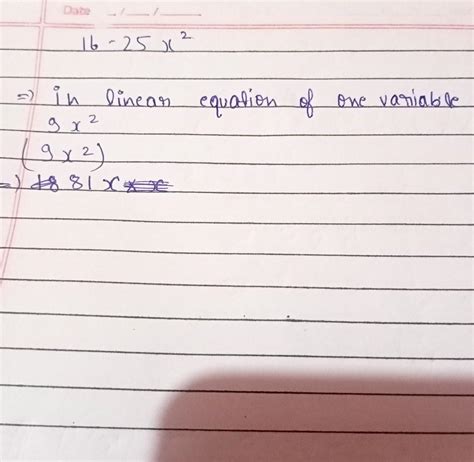 Date __/__/__
16 - 25 x²
=) in linear equation of one variable
9 x²
(9 x 2)
=) 81 x